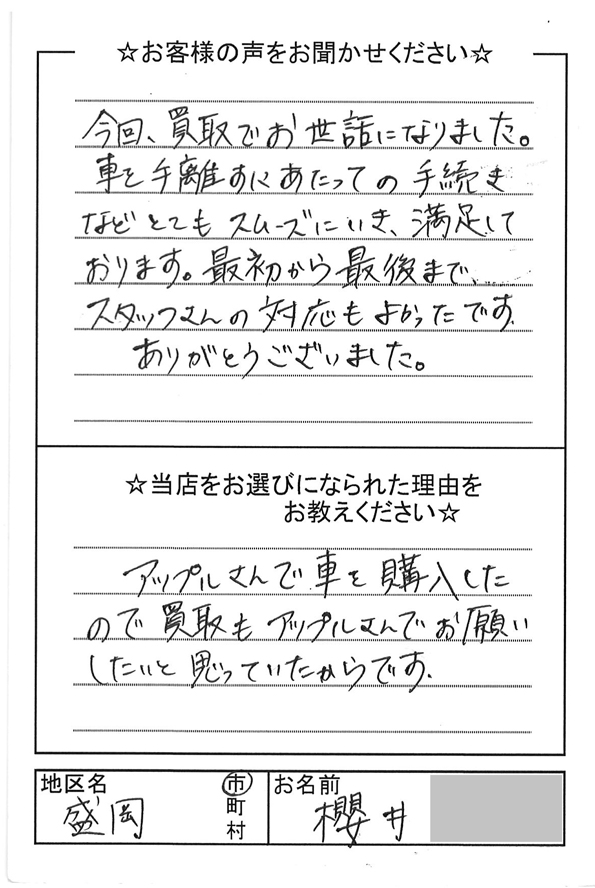 ☆お客様の声をお聞かせください☆
今回、買取でお世話になりました。
車を手離すにあたっての手続き
などとてもスムーズにいき、満足して
おります。最初から最後まで、
スタッフさんの対応もよかったです。
ありがとうございました。
☆当店をお選びになられた理由を
お教えください☆
アップルさんで車を購入した
ので買取もアップルさんでお願い
したいと思っていたからです。
地区名
盛岡
市
町
村
お名前
櫻井